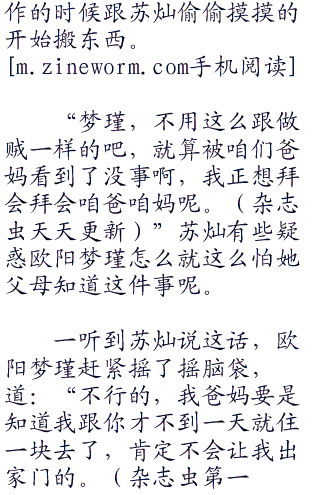 作的时候跟苏灿偷偷摸摸的
开始搬东西。
[m.zineworm.com手机阅读]
“梦瑾，不用这么跟做
贼一样的吧，就算被咱们爸
妈看到了没事啊，我正想拜
会拜会咱爸咱妈呢。（杂志
虫天天更新）”苏灿有些疑
惑欧阳梦瑾怎么就这么怕她
父母知道这件事呢。
一听到苏灿说这话，欧
阳梦瑾赶紧摇了摇脑袋，
道：“不行的，我爸妈要是
知道我跟你才不到一天就住
一块去了，肯定不会让我出
家门的。（杂志虫第一